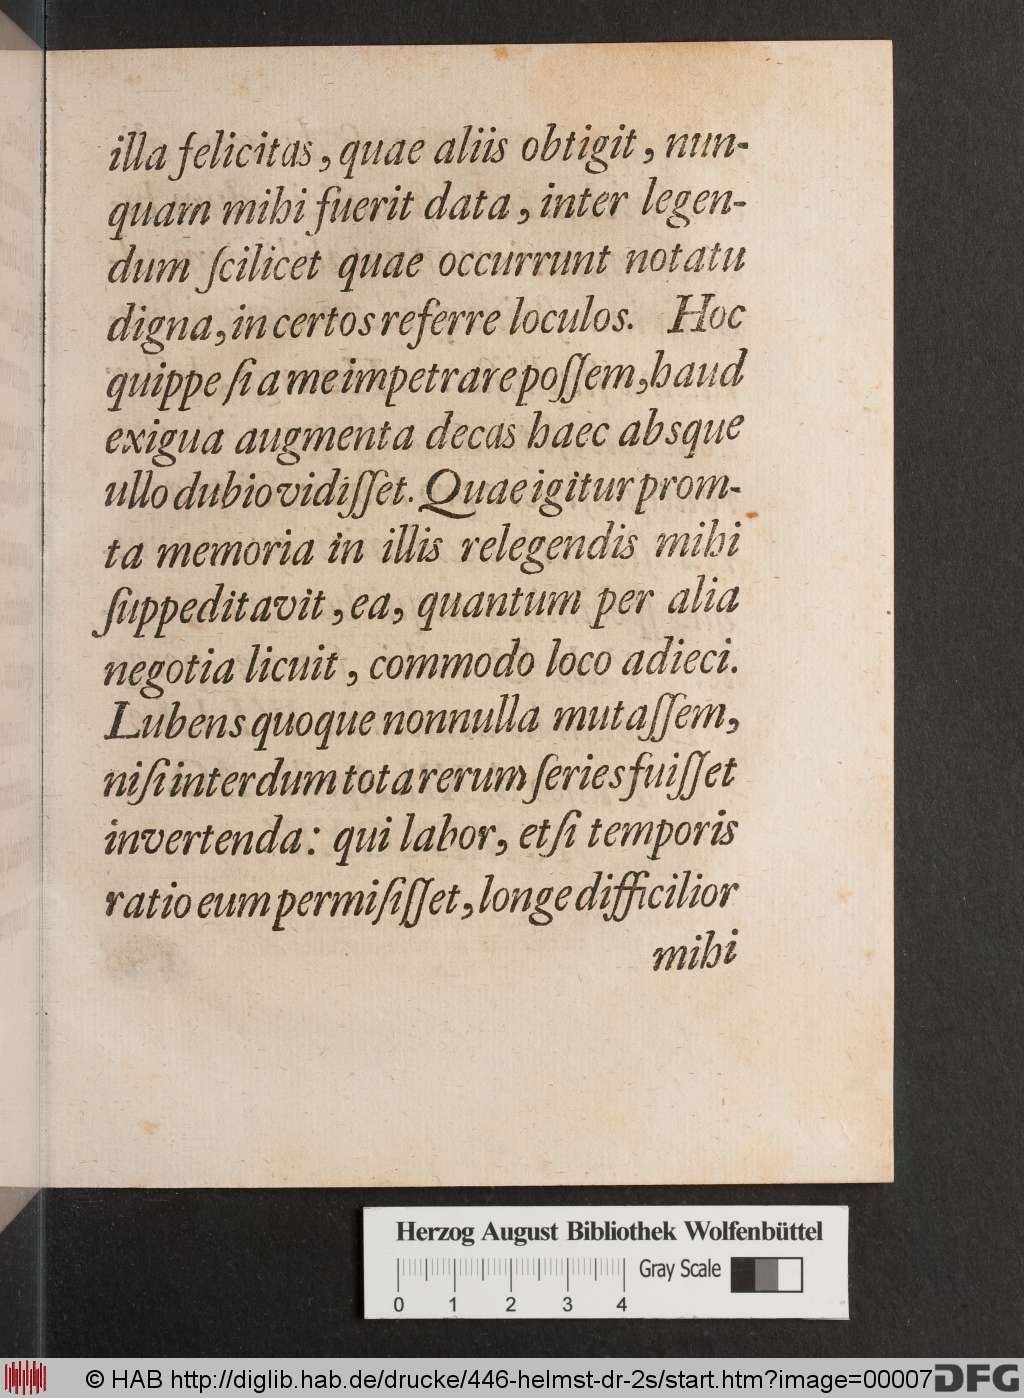 illa felicitas, quae aliis obtigit, nun-
quam mihi fuerit data, inter legen-
dum ſcilicet quae occurrunt notatu
digna, in certos referre loculos. Hoc
quippe ſi a me impetrare poſſem, haud
exigua augmenta decas haec absque
ullo dubio vidiſſet. Quae igitur prom-
ta memoria in illis relegendis mihi
ſuppeditavit, ea, quantum per alia
negotia licuit, commodo loco adieci.
Lubens quoque nonnulla mutaſſem,
niſi interdum tota rerum ſeries fuiſſet
invertenda: qui labor, etſi temporis
ratio eum permiſiſſet, longe difficilior
mihi
Herzog August Bibliothek Wolfenbüttel
Gray Scale
0 1 2 3 4
© HAB http://diglib.hab.de/drucke/446-helmst-dr-2s/start.htm?image=00007
DFG